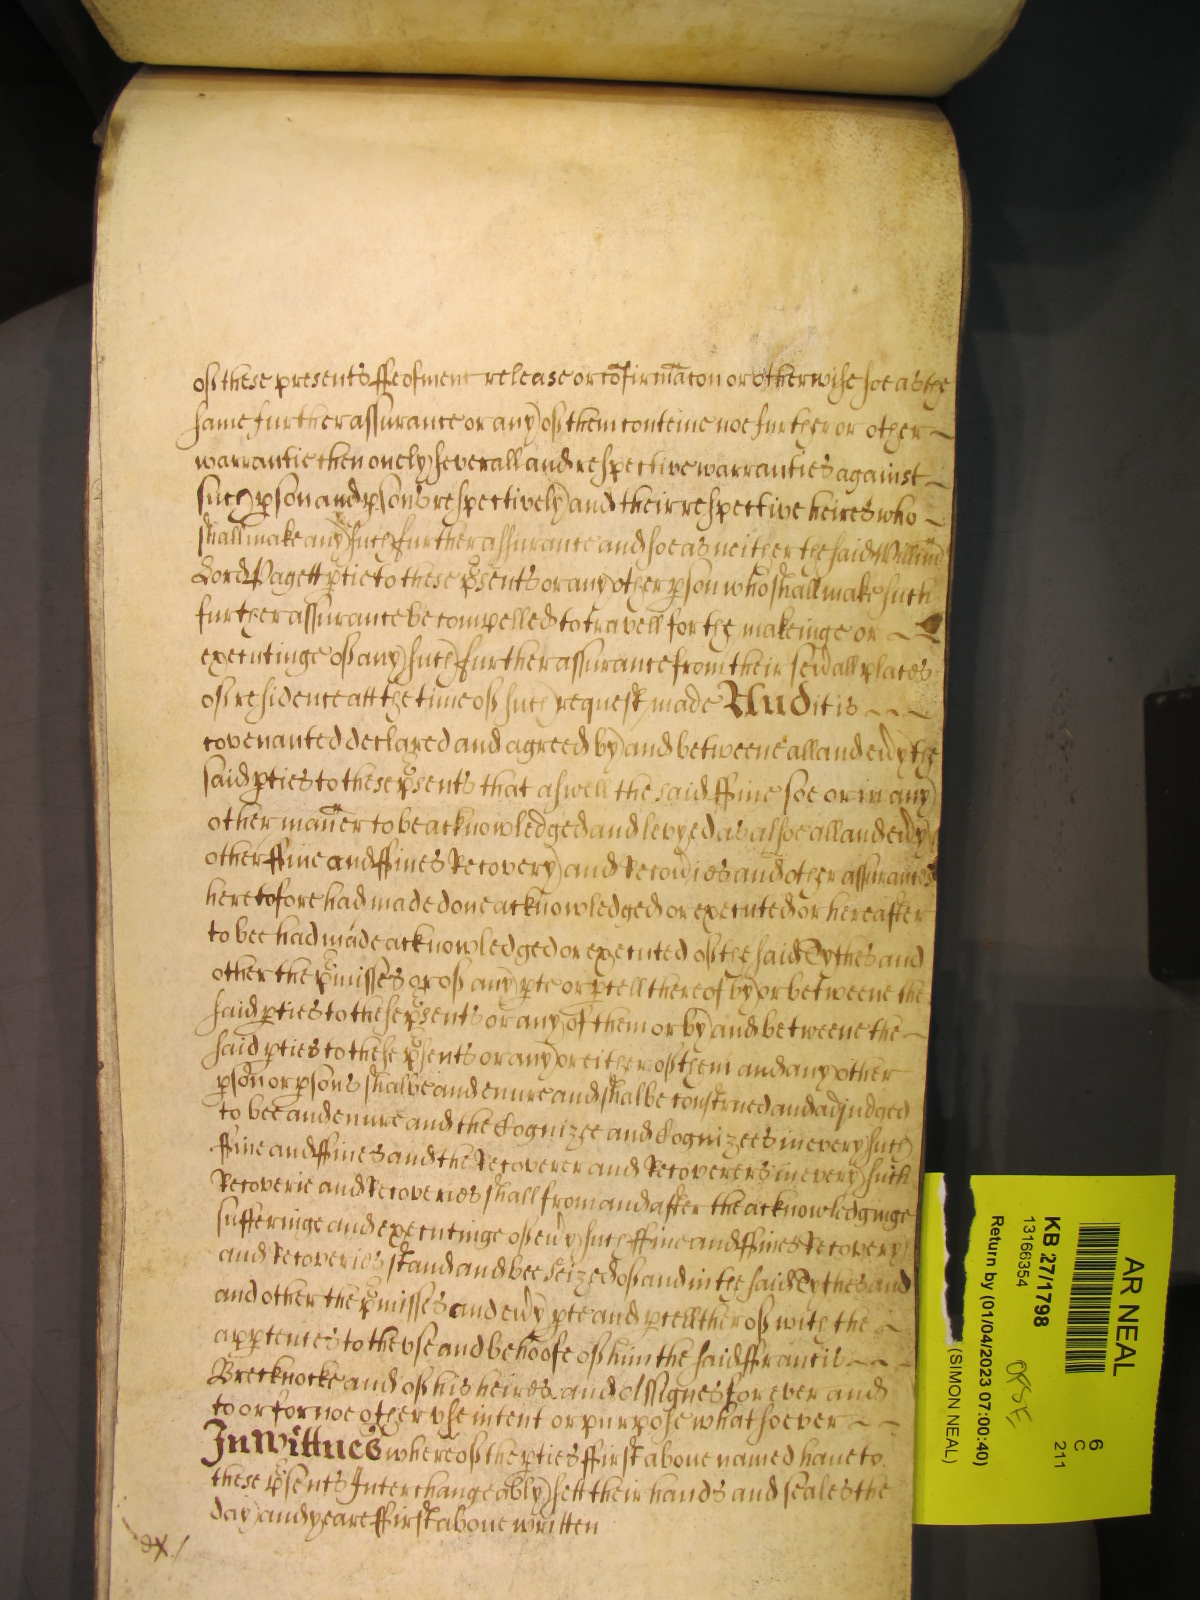 of these presents ffeofment release or cõfirmãcon or otherwise soe as the
same further assurance or any of them conteine noe further or other
warrantie then onely severall and respective warranties against
such pson and psons respectively and their respective heires who
shall make any such further assurance and soe as neither the said Willm
Lord Pagett ptie to these psents or any other pson who shall make such
further assurance be compelled to travell for the makeinge or
executinge of any such further assurance from their sevall places
of residence att the time of such request made And it is
covenanted declared and agreed by and betweene all and evy the
said pties to these psents that aswell the said ffine soe or in any
other mañer to be acknowledged and levyed as alsoe all and evy
other ffine and ffines Recovery and Recovies and other assurances
heretofore had made done acknowledged or executed or hereafter
to bee had made acknowledged or executed of the said Tythes and
other the pmisses or of any pte or pcell thereof by or betweene the
said pties to these psents or any of them or by and betweene the
said pties to these psents or any or either of them and any other
pson or psons shalbe and enure and shalbe construed and adjudged
to bee and enure and the Cognizee and Cognizees in every such
ffine and ffines and the Recoverer and Recoverers in every such
Recoverie and Recoveries shall from and after the acknowledginge
sufferinge and executinge of evy such ffine and ffines Recovery
and Recoveries stand and bee seized of and in the said Tythes and
and other the pmisses and evy pte and pcell therof with the
apptences to the vse and behoofe of him the said ffrancis
Brecknocke and of his heires and Assignes for ever and
to or for noe other vse intent or purpose whatsoever
In Wittnes whereof the pties ffirst above named have to
these psents Interchangeably sett their hands and seales the
day and yeare ffirst above written
ex /
AR NEAL
6
C
211
KB 27/1798
13166354
Return by (01/04/2023 07:00:40)
(SIMON NEAL)